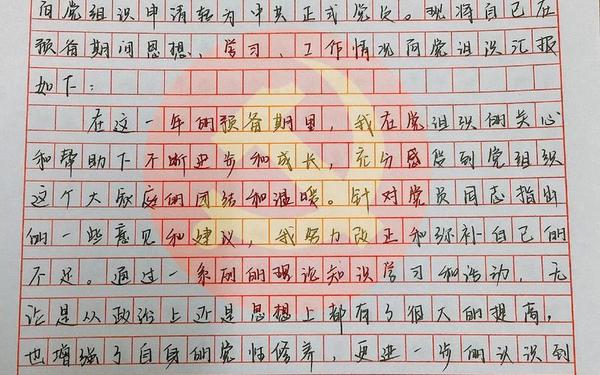 向党组织申请转为中共正式党员。现将自己在
预备期间思想、学习、工作情况向党组织汇报
如下:
在这一年的预备期里,我在党组织的关心
和帮助下不断进步和成长,充分感受到党组织
这个大家庭的团结和温暖。针对党员同志指出
的一些意见和建议,我努力改正和弥补自己的
不足。通过一系列的理论知识学习和活动,无
论是从政治上还是思想上都有了很大的提高,
也增强了自身的党性修养,更进一步的认识到